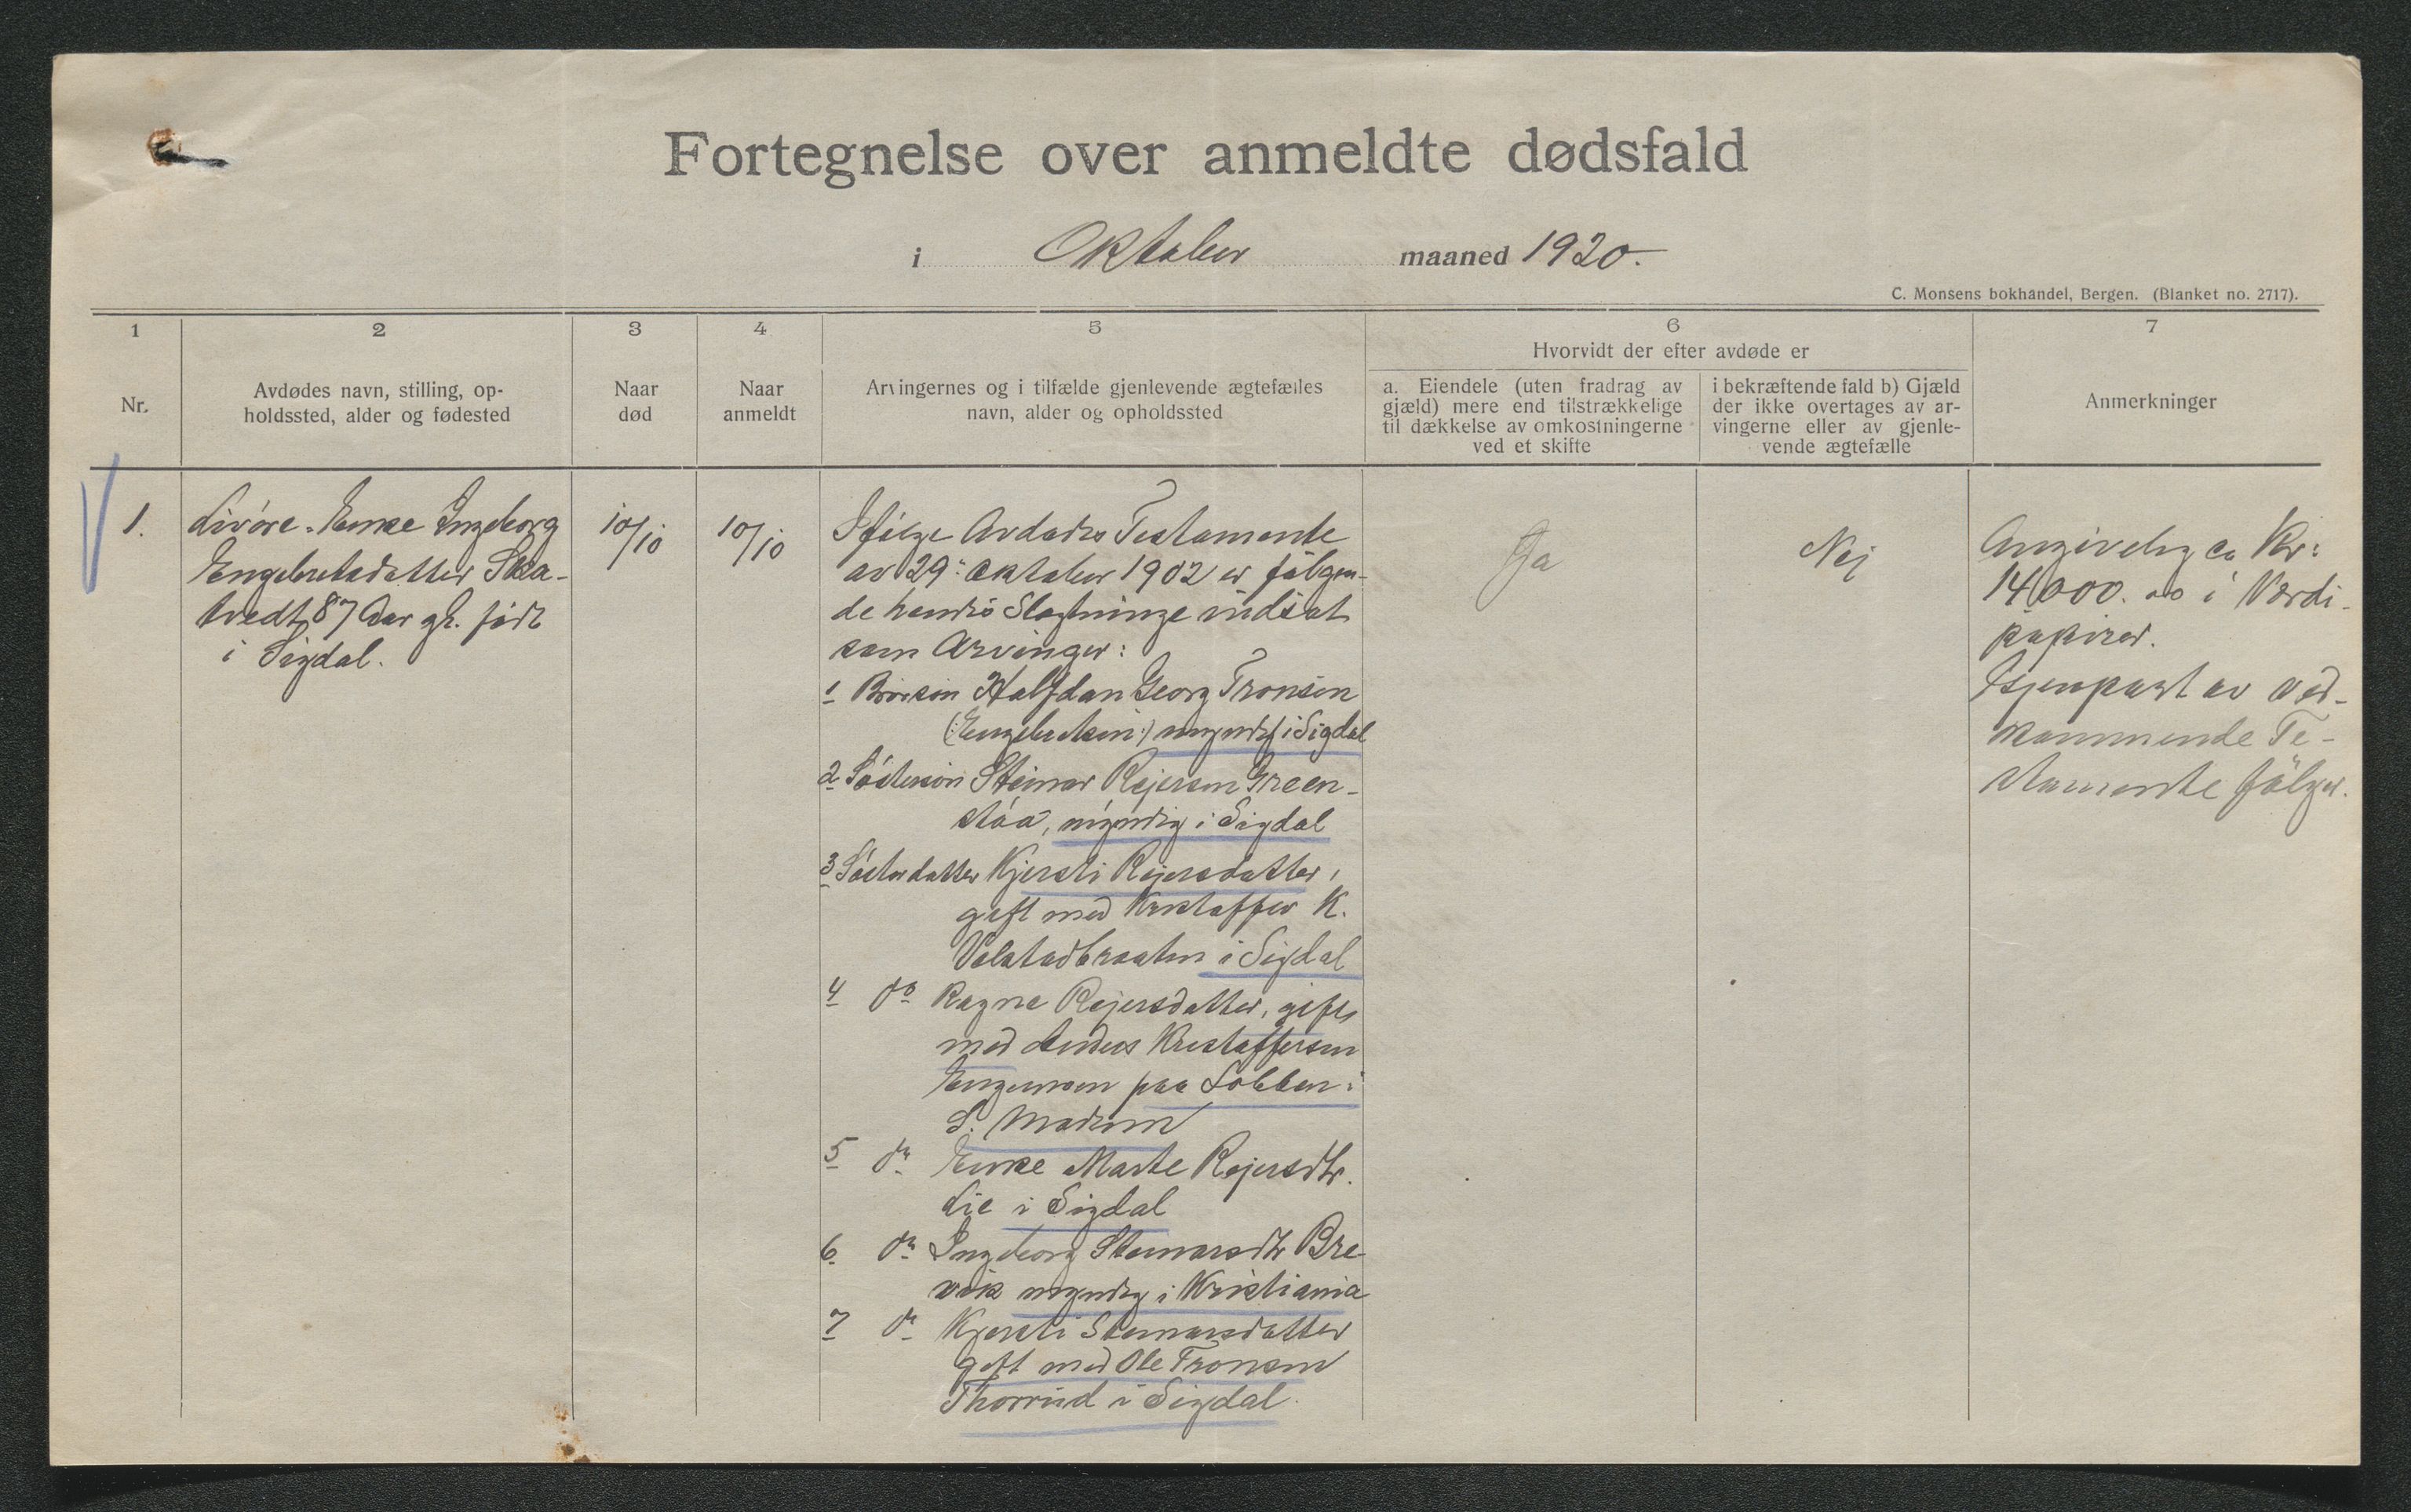 Fortegnelse over anmeldte dødsfald
i Oktober maaned 1920.
C. Monsens bokhandel, Bergen. (Blanket no. 2717).
1
Nr.
2
Avdødes navn, stilling, op-
holdssted, alder og fødested
3
Naar
død
4
Naar
anmeldt
5
Arvingernes og i tilfælde gjenlevende ægtefælles
navn, alder og opholdssted
6
Hvorvidt der efter avdøde er
a. Eiendele (uten fradrag av
gjæld) mere end tilstrækkelige
til dækkelse av omkostningerne
ved et skifte
i bekræftende fald b) Gjæld
der ikke overtages av ar-
vingerne eller av gjenle-
vende ægtefælle
7
Anmerkninger
1.
Livøre. Enke Ingeborg
Engebretsdatter Ska-
tvedt, 87 Aar gl. født
i Sigdal.
10/10
10/10
Ifølge Avdødes Testamente
av 29. oktober 1902 er følgen-
de hendes Slegtninge indsat
som Arvinger:
1 Brorsøn Halfdan Georg Tronsen
(:Engebretsen:) myndig i Sigdal
2 Søstersøn Steinar Rejersen Green-
staa, myndig i Sigdal
3 Søsterdatter Kjersti Rejersdatter,
gift med Kristoffer K.
Valstadbraaten i Sigdal
4 do Ragne Rejersdatter, gift
med Anders Kristoffersen
Engemoen paa Sole i
S. Modum
5 do Enke Marte Rejersdtr.
Lie i Sigdal
6 do Ingeborg Steinarsdtr Bre-
vik myndig i Kristiania
7 do Kjersti Steinarsdatter
gift med Ole Tronsen
Thorrud i Sigdal.
Ja
Nej
Angivelig ca Kr:
14000.00 i Værdi-
papirer.
Gjenpart av ved-
kommende Te-
stamente følger.